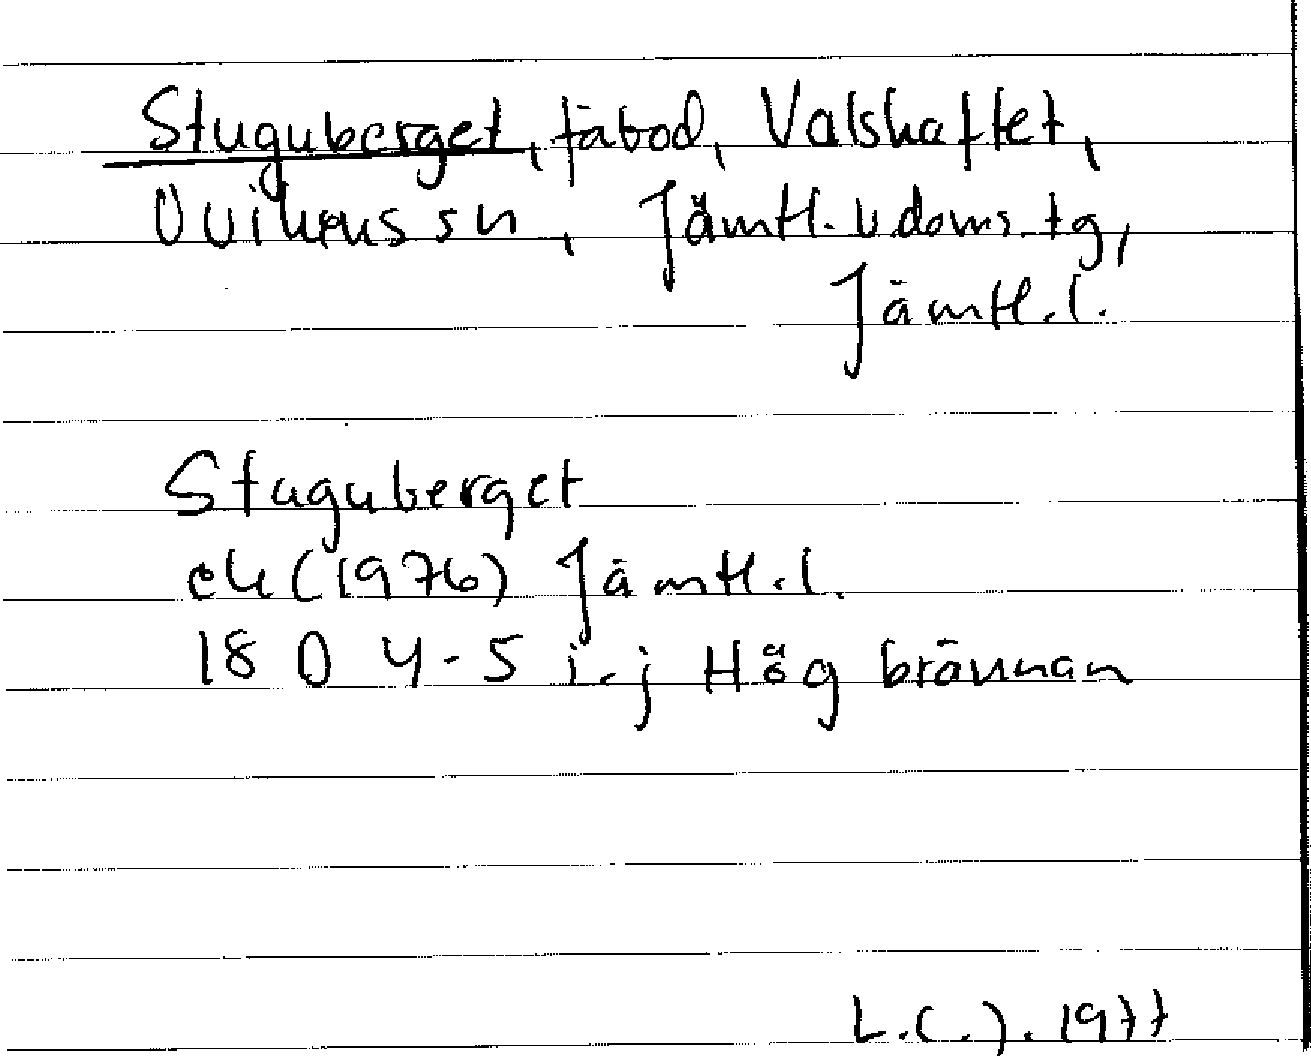 Stuguberget, fäbod, Valskaftet,
Ovikens sn, Jämtl. v doms. tg,
Jämtl. l.
Stuguberget
ek (1976) Jämtl. l.
18 D 4-5 i-j Högbrännan
L.C.J. 1977